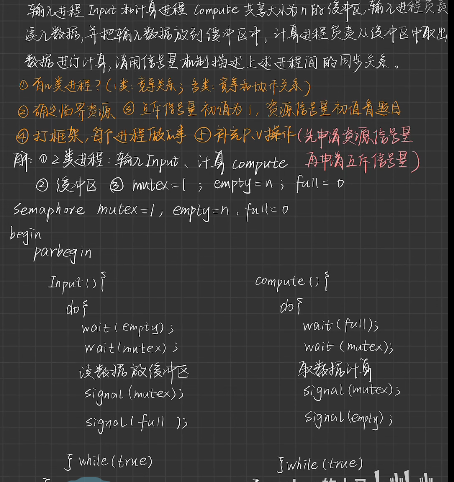 输入进程 Input 和计算进程 Compute 共享大小为n的缓冲区,输入进程负责
读入数据,并把输入数据放到缓冲区中,计算进程负责从缓冲区中取出
数据进行计算,请用信号量机制描述上述进程间的同步关系。
①有几类进程?(1类:竞争关系;多类:竞争和协作关系)
②确定临界资源 ③互斥信号量初值为1,资源信号量初值看题目
④打框架,每个进程做的事 ⑤补充P、V操作(先申请资源信号量
再申请互斥信号量)
解:①2类进程:输入Input、计算compute
②缓冲区 ③mutex=1;empty=n;full=0
Semaphore mutex=1,empty=n,full=0
begin
parbegin
Input(){
do{
wait(empty);
wait(mutex);
读数据放缓冲区
signal(mutex);
signal(full );
}while(true)
compute(){
do{
wait(full);
wait(mutex);
取数据计算
signal(mutex);
signal(empty);
}while(true)